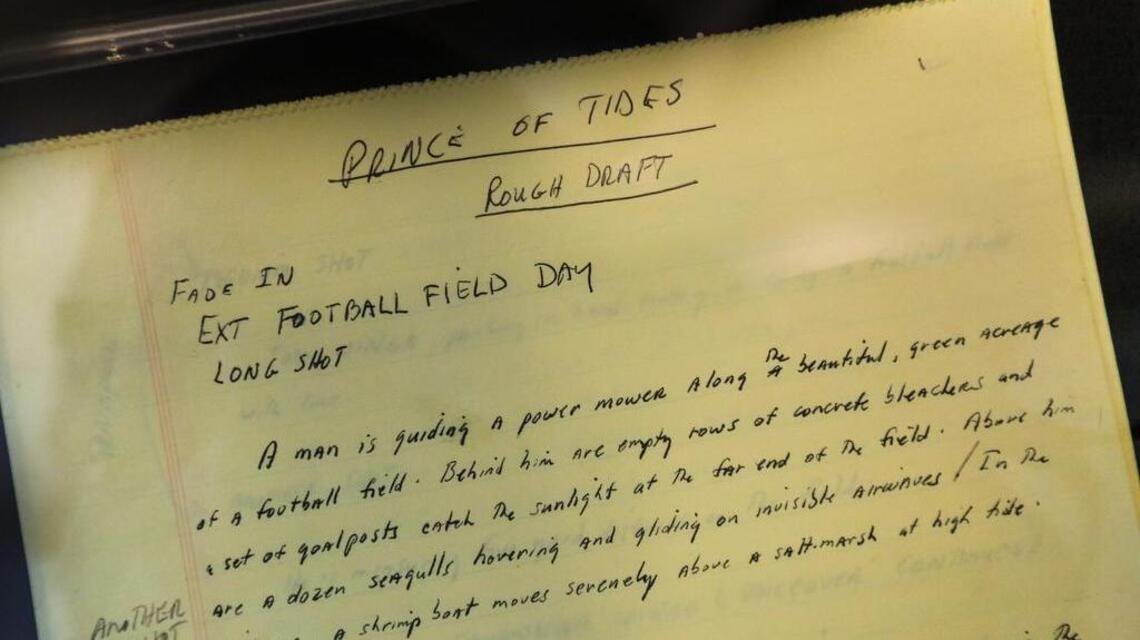 PRINCE OF TIDES
ROUGH DRAFT
FADE IN
EXT FOOTBALL FIELD DAY
LONG SHOT
The
A MAN is guiding A power mower Along A beautiful, green Acreage
of A football field. Behind him Are empty rows of concrete bleachers and
a set of goalposts catch the sunlight at the far end of the field. Above him
Are A dozen seagulls hovering and gliding on invisible Airwaves / In the
A shrimp boat moves serenely above A salt-marsh at high tide.
ANOTHER
SHOT
The